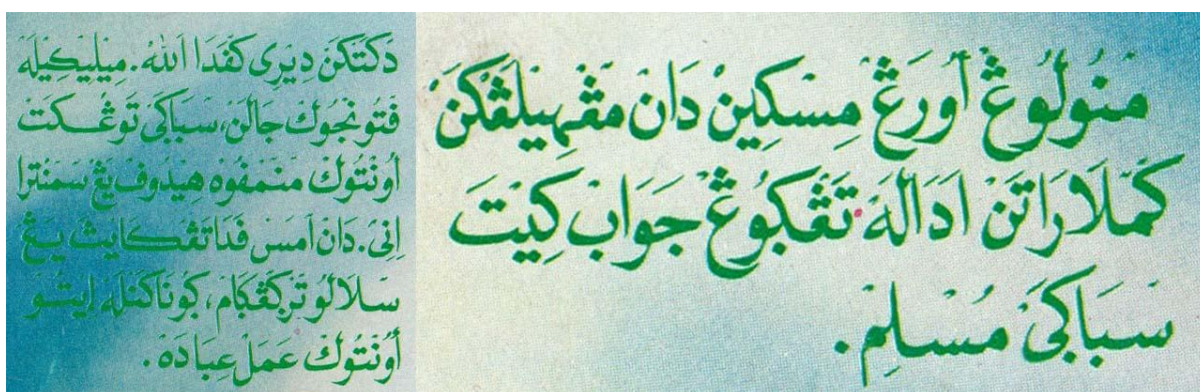 مَنُولُوڠْ أورَڠْ مِسكِينْ دَانْ مڠْهِيلَڠْكَنْ
كَمَلَارَاتَنْ اَدَالَهْ تَڠْكُوڠْ جَوَابْ كِيْتَ
سَبَاكَيْ مُسْلِمْ.
دَكَتَكَنْ دِيْرِى كَفَدَا اللهْ. مِيْلِيكِيْلَهْ
فَتُونْجُوكْ جَالَنْ، سَبَاكَيْ تَوڠْكَتْ
اُونْتُوكْ مَنَمْفُوهْ هِيْدُوفْ يَڠْ سَمَنْتَرَا
اِنِيْ. دَانْ اَمَسْ فَدَا تَڠْكَايْڽَ يَڠْ
سَلَالُو تَرْكَڠْكَامْ، كُونَاكَنْلَهْ اِيتُو
أُونْتُوكْ عَمَلْ عِبَادَهْ.